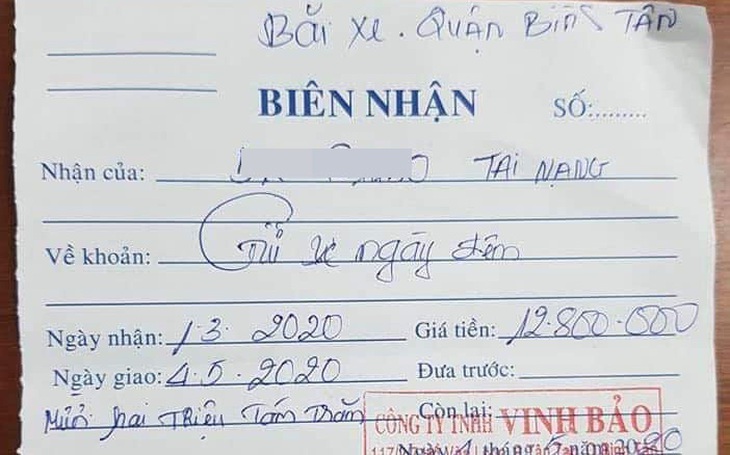 Bãi xe. Quận Bình Tân
BIÊN NHẬN SỐ:.........
Nhận của: TAI NẠNG
Về khoản: Gửi xe ngày đêm
Ngày nhận: 1.3. 2020 Giá tiền: 12.800.000
Ngày giao: 4.5.2020 Đưa trước:
Mười hai Triệu Tám Trăm Còn lại:
CÔNG TY TNHH VINH BẢO
Ngày 4 tháng 5 năm 2020